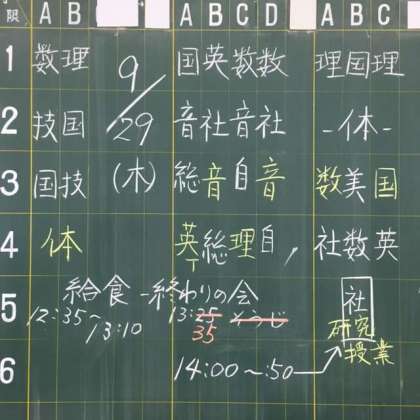 限 A B A B C D A B C
1 数理 9/29 国英数数 理国理
2 技国 音社音社 -体-
3 国技 (木) 総音自音 数美国
4 体 英T総理自, 社数英
5 給食 終わりの会 社
12:35~13:10 13:25 そうじ 研究
35 授業
6 14:00~:50